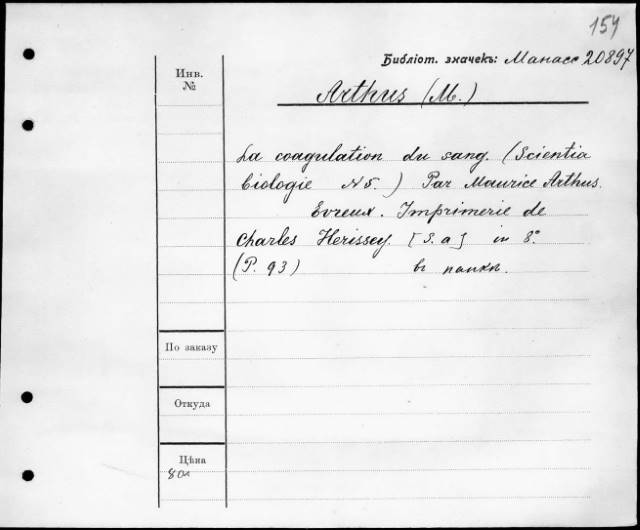 154
Библіот. значекъ: Манасс 20897
Инв. №
Arthus (M.)
La coagulation du sang. (Scientia
biologie N 5.) Par Maurice Arthus.
Evreux. Imprimerie de
Charles Herissey. [S. a] in 8°
(P. 93) въ папкѣ.
По заказу
Откуда
Цѣна